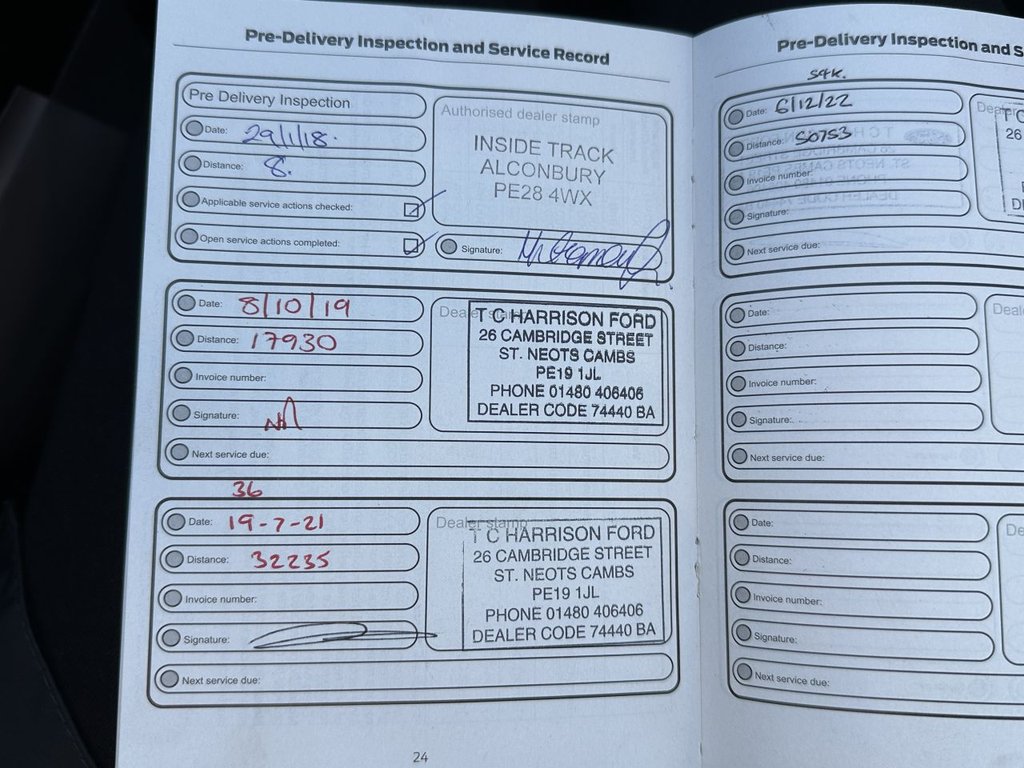 Pre-Delivery Inspection and Service Record
Pre Delivery Inspection
Date: 29/1/18.
Distance: 8.
Applicable service actions checked:
Open service actions completed:
Authorised dealer stamp
INSIDE TRACK
ALCONBURY
PE28 4WX
Signature:
Date: 8/10/19
Distance: 17930
Invoice number:
Signature:
Next service due:
Dealer stamp
T C HARRISON FORD
26 CAMBRIDGE STREET
ST. NEOTS CAMBS
PE19 1JL
PHONE 01480 406406
DEALER CODE 74440 BA
36
Date: 19-7-21
Distance: 32235
Invoice number:
Signature:
Next service due:
Dealer stamp
T C HARRISON FORD
26 CAMBRIDGE STREET
ST. NEOTS CAMBS
PE19 1JL
PHONE 01480 406406
DEALER CODE 74440 BA
24
Pre-Delivery Inspection and S
54K.
Date: 6/12/22
Distance: 50753
Invoice number:
Signature:
Next service due:
T C
26
DE
Date:
Distance:
Invoice number:
Signature:
Next service due:
Deal
Date:
Distance:
Invoice number:
Signature:
Next service due:
De